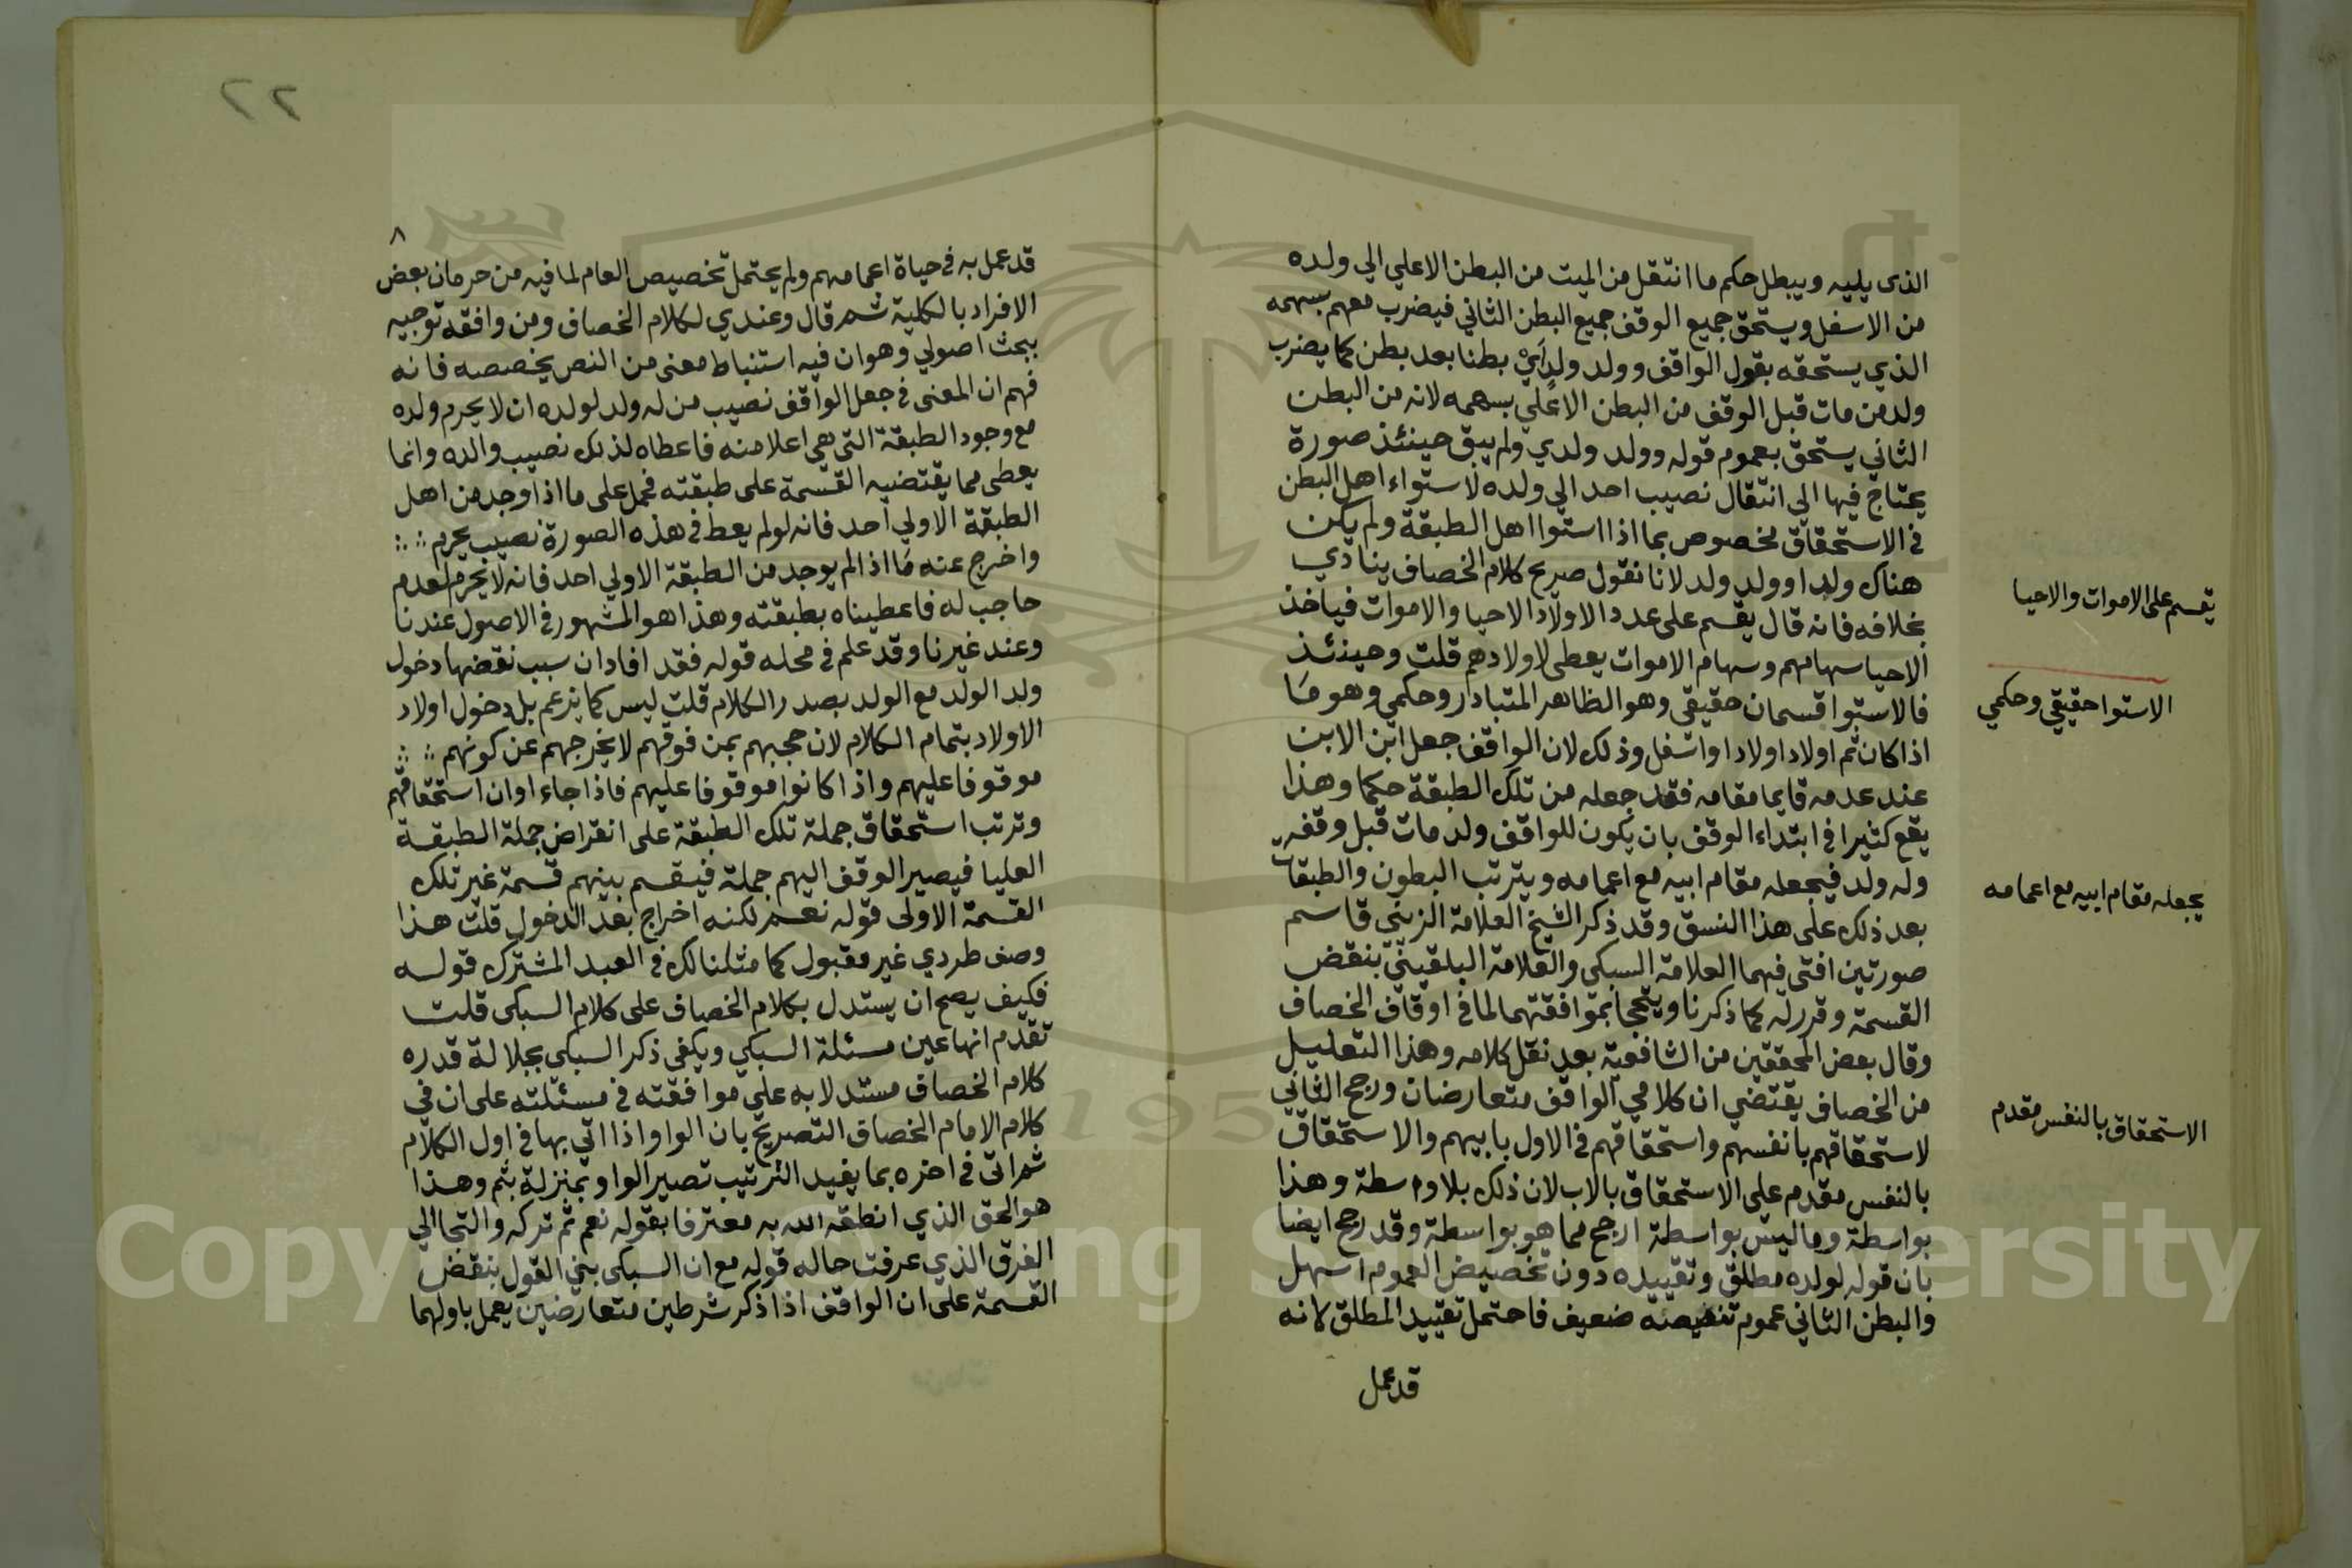 الذى يليه ويبطل حكم ما انتقل من الميت من البطن الاعلي الي ولده
من الاسفل ويستحق جميع الوقف جميع البطن الثاني فيضرب معهم بسهمه
الذي يستحقه بقول الواقف وولد ولدي بطنا بعد بطن كما يضرب
ولد من مات قبل الوقف من البطن الاعلي بسهمه لانه من البطن
الثاني يستحق بعموم قوله وولد ولدي ولم يبق حينئذ صورة
يحتاج فيها الي انتقال نصيب احد الي ولده لاستواء اهل البطن
في الاستحقاق مخصوص بما اذا استوا اهل الطبقة ولم يكن
هناك ولد او ولد ولد لانا نقول صريح كلام الخصاف ينادي
بخلافه فانه قال يقسم على عدد الاولاد الاحيا والاموات فياخذ
الاحيا سهامهم وسهام الاموات يعطى لاولادهم قلت وحينئذ
فالاستوا قسمان حقيقي وهو الظاهر المتبادر وحكمي وهو ما
اذا كان ثم اولاد اولاد او اسفل وذلك لان الواقف جعل ابن الابن
عند عدمه قايما مقامه فقد جعله من تلك الطبقة حكما وهذا
يقع كثيرا في ابتداء الوقف بان يكون للواقف ولد مات قبل وقفه
وله ولد فيجعله مقام ابيه مع اعمامه ويترتب البطون والطبقات
بعد ذلك على هذا النسق وقد ذكر الشيخ العلامة الزيني قاسم
صورتين افتى فيهما العلامة السبكي والعلامة البلقيني بنقض
القسمة وقرر له كما ذكرنا ويتجحا بموافقتهما لما في اوقاف الخصاف
وقال بعض المحققين من الشافعية بعد نقل كلامه وهذا التعليل
من الخصاف يقتضي ان كلامي الواقف متعارضان ورجح الثاني
لاستحقاقهم بانفسهم واستحقاقهم في الاول بابيهم والاستحقاق
بالنفس مقدم على الاستحقاق بالاب لان ذلك بلا واسطة وهذا
بواسطة وما ليس بواسطة ارجح مما هو بواسطة وقد رجح ايضا
بان قوله لولده مطلق وتقييده دون تخصيص العموم اسهل
والبطن الثاني عموم ضعيف فاحتمل تقييد المطلق لانه
قد عمل
تقسم على الاموات والاحيا
الاستوا حقيقي وحكمي
يجعله مقام ابيه مع اعمامه
الاستحقاق بالنفس مقدم
٢٢
٨
قد عمل به في حياة اعمامهم ولم يحتمل تخصيص العام لما فيه من حرمان بعض
الافراد بالكلية ثم قال وعندي لكلام الخصاف ومن وافقه توجيه
ببحث اصولي وهو ان فيه استنباط معنى من النص يخصصه فانه
فهم ان المعنى في جعل الواقف نصيب من له ولد لولده ان لا يحرم ولده
مع وجود الطبقة التي هي اعلا منه فاعطاه لذلك نصيب والده وانما
يعطى مما يقتضيه القسمة على طبقته فحمل على ما اذا وجد من اهل
الطبقة الاولي احد فانه لو لم يعط في هذه الصورة نصيب يحرم
واخرج عنه ما اذا لم يوجد من الطبقة الاولي احد فانه لا يحرم لعدم
حاجب له فاعطيناه بطبقته وهذا هو المشهور في الاصول عندنا
وعند غيرنا وقد علم في محله قوله فقد افاد ان سبب نقضها دخول
ولد الولد مع الولد بصدر الكلام قلت ليس كما يزعم بل دخول اولاد
الاولاد بتمام الكلام لان حجبهم بمن فوقهم لا يخرجهم عن كونهم
موقوفا عليهم واذا كانوا موقوفا عليهم فاذا جاء اوان استحقاقهم
وترتب استحقاق جملة تلك الطبقة على انقراض جملة الطبقة
العليا فيصير الوقف اليهم جملة فيقسم بينهم قسمة غير تلك
القسمة الاولى قوله نعم لكنه اخراج بعد الدخول قلت هذا
وصف طردي غير مقبول كما مثلنا لك في العبد المشترك قوله
فكيف يصح ان يستدل بكلام الخصاف على كلام السبكي قلت
تقدم انها عين مسئلة السبكي ويكفي ذكر السبكي بجلالة قدره
كلام الخصاف مستدلا به على موافقته في مسئلته على ان في
كلام الامام الخصاف التصريح بان الواو اذا اتي بها في اول الكلام
ثم اتى في اخره بما يفيد الترتيب تصير الواو بمنزلة بثم وهذا
هو الحق الذي انطقه الله به معترفا بقوله نعم ثم تركه والتجا الي
الفرق الذي عرفت حاله قوله مع ان السبكي بنى القول بنقض
القسمة على ان الواقف اذا ذكر شرطين متعارضين يعمل باولهما